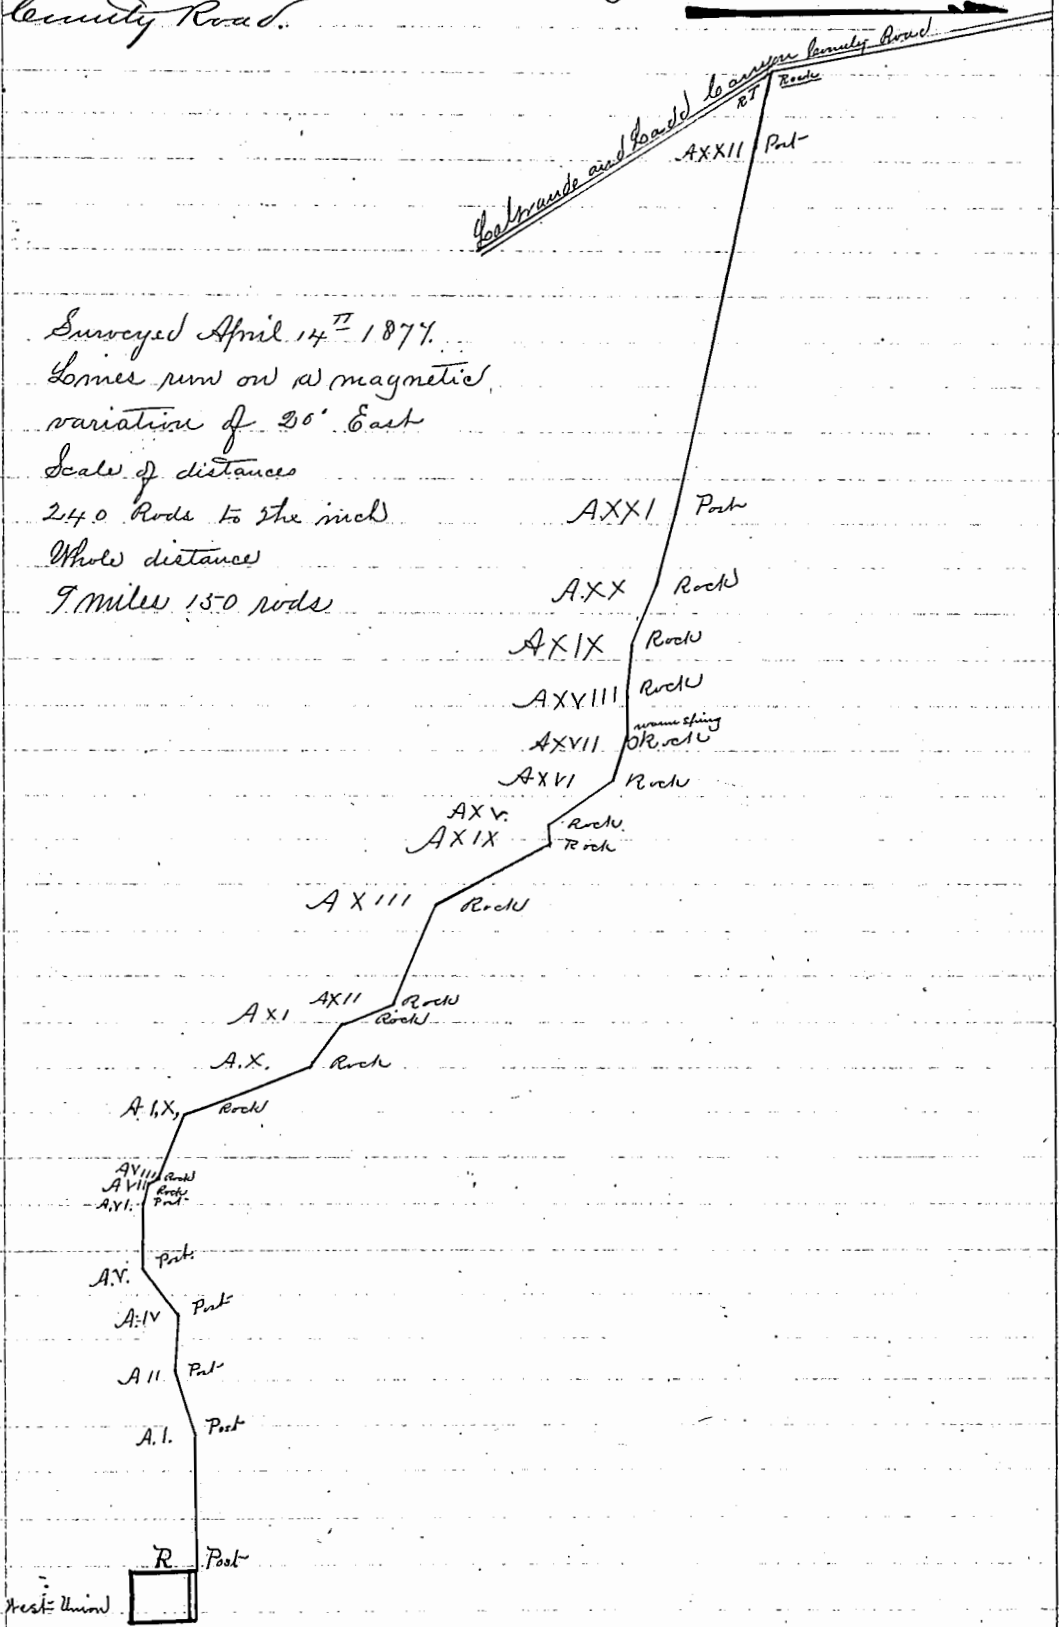 County Road.
LaGrande and Ladd Canyon County Road
RT Rock
AXXII Post
Surveyed April 14th 1877.
Lines run on a magnetic
variation of 20° East
Scale of distances
240 Rods to the inch
Whole distance
9 miles 150 rods
AXXI Post
A.XX Rock
AXIX Rock
AXVIII Rock
warm spring
AXVII Rock
AXVI Rock
AXV. Rock.
AXIX Rock
AXIII Rock
AXII Rock
AXI Rock
A.X. Rock
A I,X, Rock
AVIII Rock
AVII Rock
A.VI. Post
A.V. Post.
A.IV Post
A II Post
A.I. Post
R Post
West Union